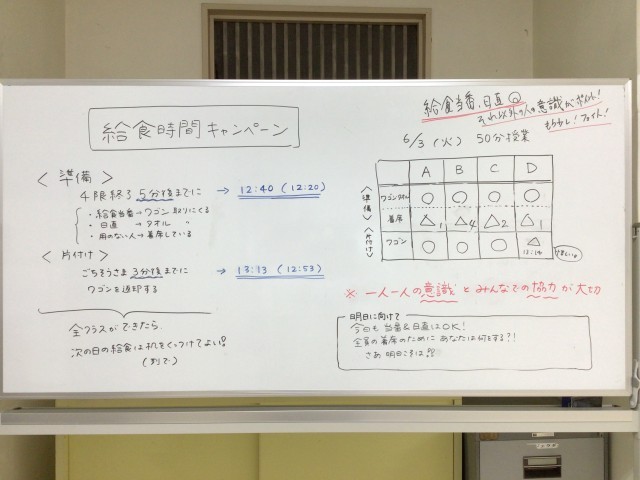 給食時間キャンペーン
〈準備〉
4限終了5分後までに → 12:40 (12:20)
・給食当番→ワゴン取りにくる
・日直 → タオル 〃
・用のない人→着席している
〈片付け〉
ごちそうさま3分後までに → 13:13 (12:53)
ワゴンを返却する
全クラスができたら
次の日の給食は机をくっつけてよい!!
(列で)
給食当番、日直
それ以外の人の意識がポイント!
もう少し!ファイト!
6/3 (火) 50分授業
A B C D
〈準備〉
ワゴンタオル ○ ○ ○ ○
着席 △1 △4 △2 △1
〈片付け〉
ワゴン ○ ○ ○ △ 13:14
惜しい!!
※ 一人一人の意識とみんなでの協力が大切
明日に向けて
今日も当番&日直はOK!
全員の着席のためにあなたは何をする?!
さあ明日こそは!!